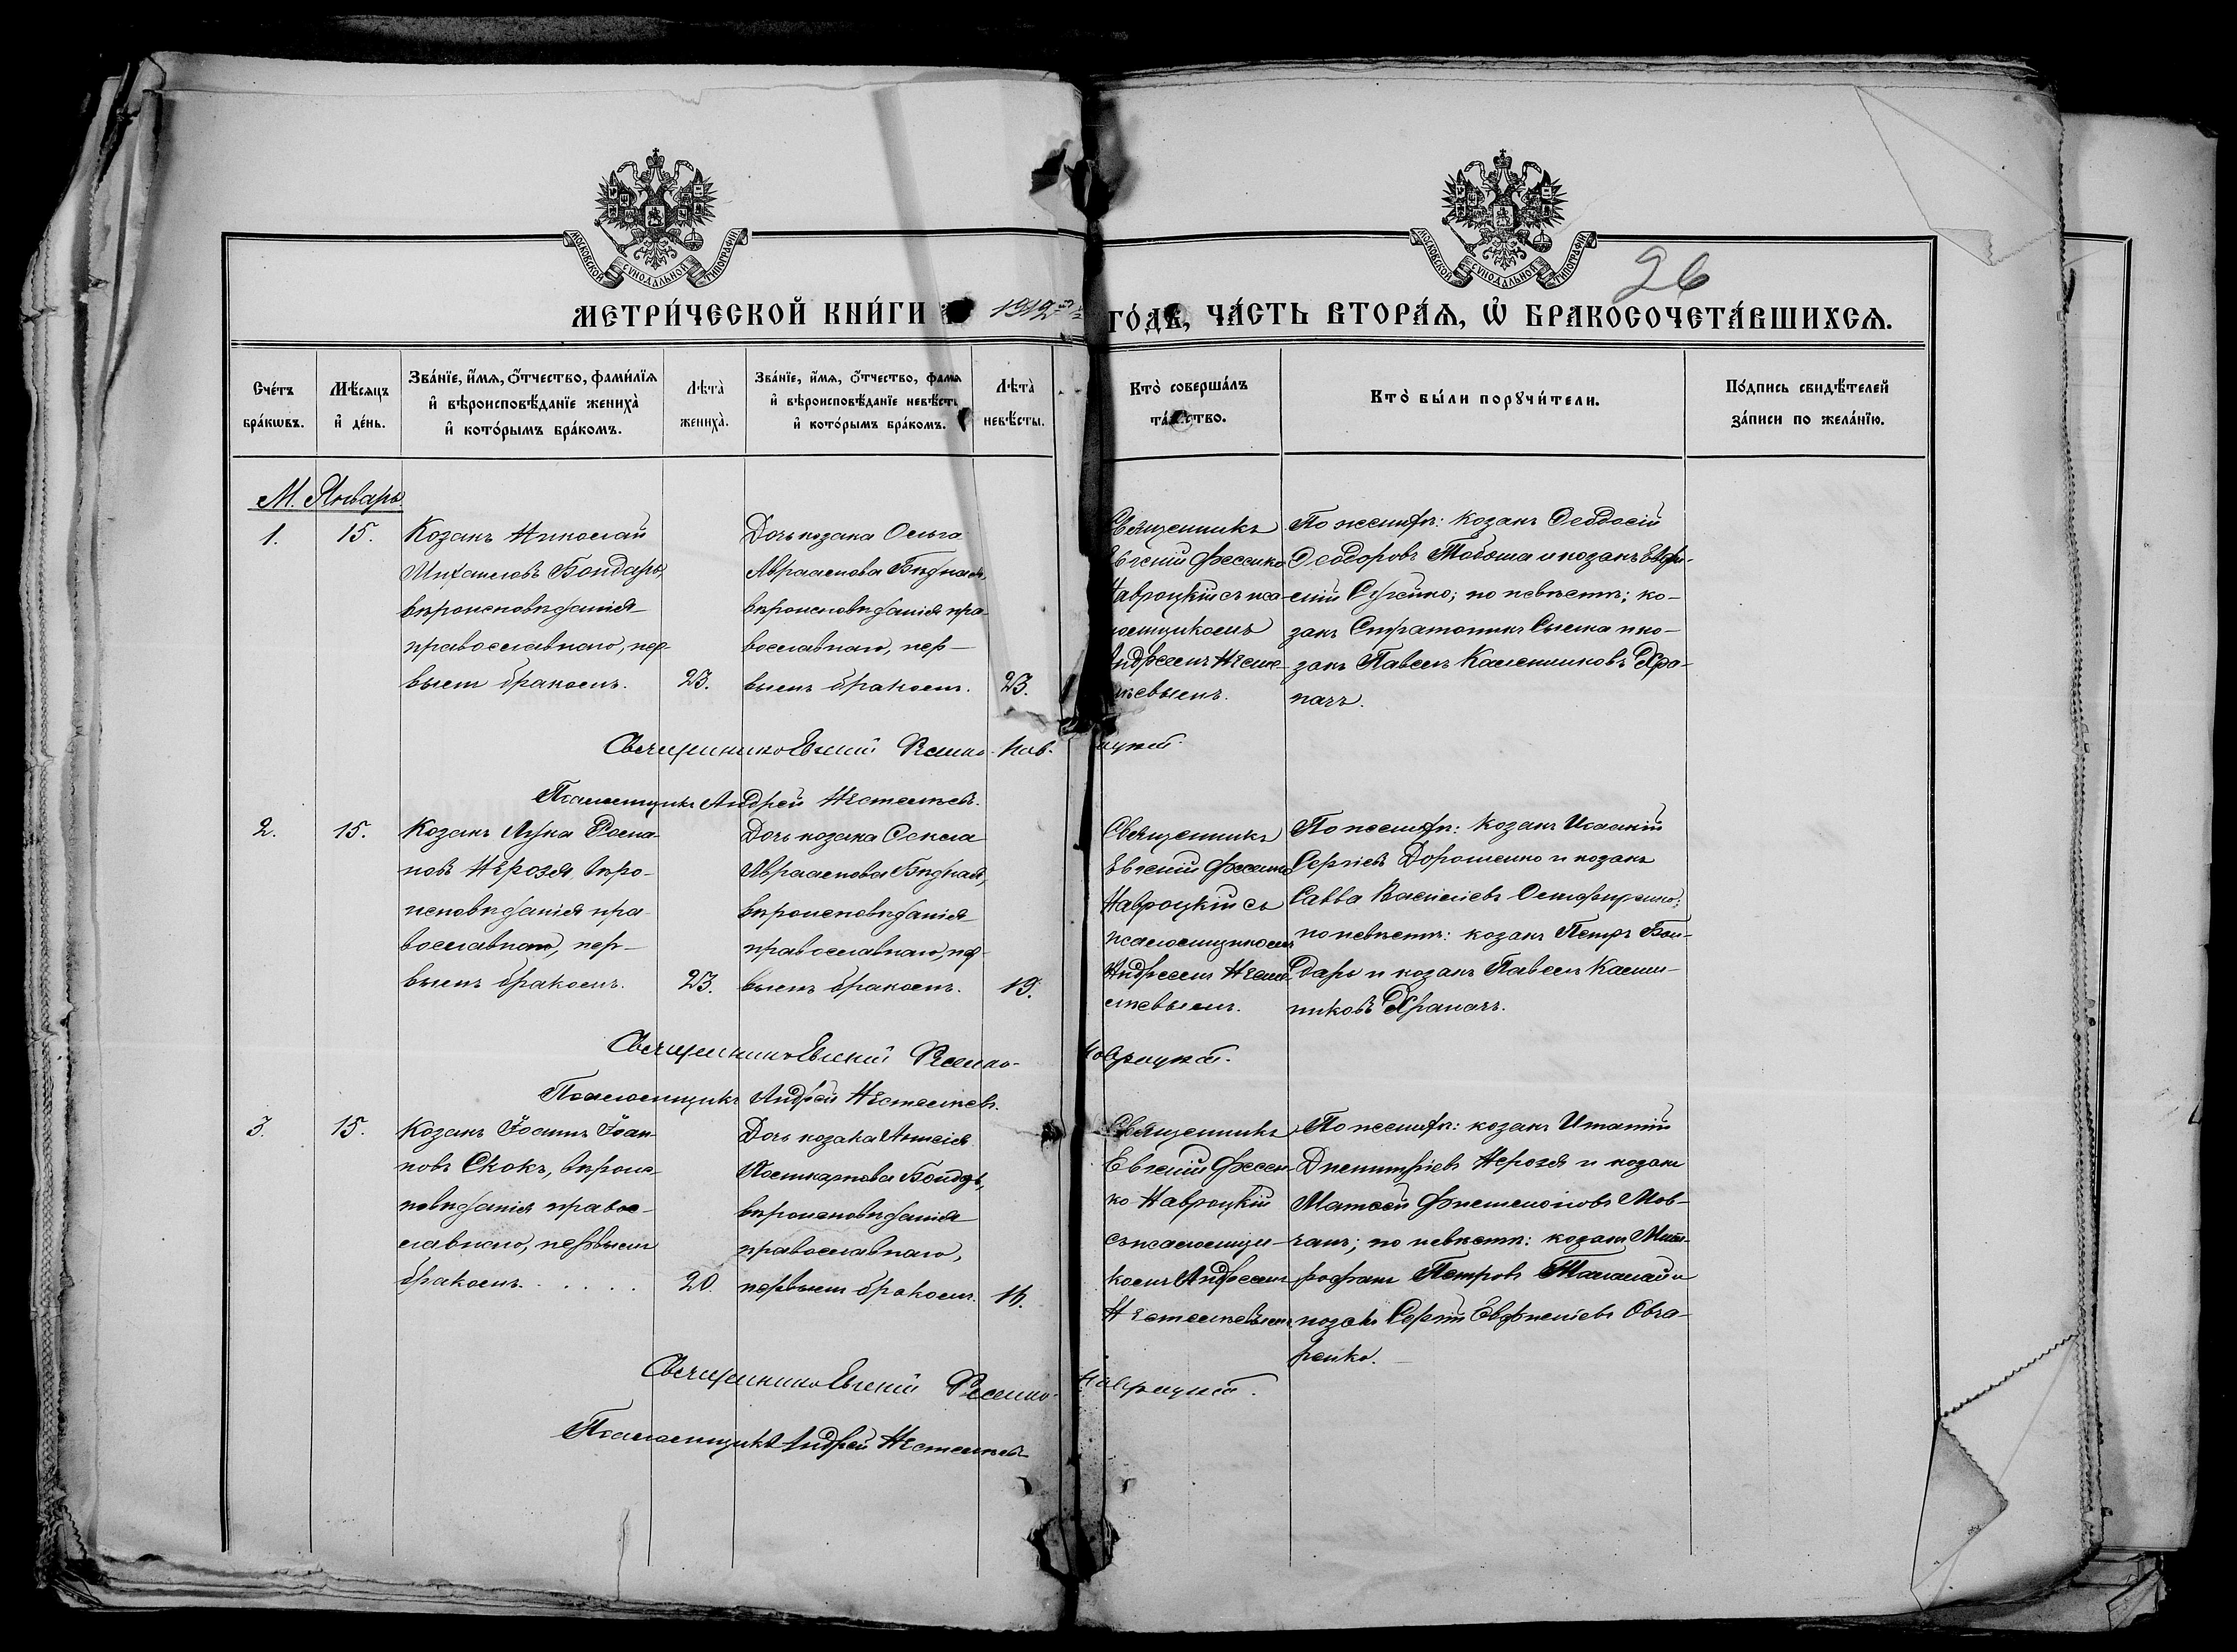 МОСКОВСКОЙ СУНОДАЛЬНОЙ ТИПОГРАФІИ
МОСКОВСКОЙ СУНОДАЛЬНОЙ ТИПОГРАФІИ
26
МЕТРИ́ЧЕСКОЙ КНИ́ГИ 1912 ГО́ДѢ, ЧА́СТЬ ВТОРА́Ѧ, Ѡ БРАКОСОЧЕТА́ВШИХСѦ.
Сче́тъ бра́кѡвъ.
Мѣ́сѧцъ и҆ де́нь.
Зва́нїе, и҆́мѧ, о҆́тчество, фами́лїѧ и҆ вѣроисповѣ́данїе жениха̀ и҆ кото́рымъ бра́комъ.
Лѣта̀ жениха̀.
Зва́нїе, и҆́мѧ, о҆́тчество, фамил и҆ вѣроисповѣ́данїе невѣ́сты и҆ кото́рымъ бра́комъ.
Лѣта̀ невѣ́сты.
Кто̀ соверша́лъ та́инство.
Кто̀ бы́ли порꙋчи́тели.
По́дпись свидѣ́телей за́писи по жела́нїю.
М. Январь.
1.
15.
Козакъ Николай
Михаиловъ Бондарь,
вѣроисповѣданія
православнаго, пер-
вымъ бракомъ.
23.
Дочь козака Ольга
Авраамова Бѣдная,
вѣроисповѣданія пра-
вославнаго, пер-
вымъ бракомъ.
23.
Священникъ
Евгеній Фесенко
Навроцкій съ пса-
ломщикомъ
Андреемъ
По женихѣ: козакъ Ѳеодосій
Ѳеодоровъ и козакъ Евфи-
мій; по невѣстѣ: ко-
закъ Стратоникъ и ко-
закъ Павелъ Каленниковъ Хра-
пачъ.
Священникъ Евгеній Фесенко-Навроцкій.
Псаломщикъ Андрей
2.
15.
Козакъ Лука Рома-
новъ Нерозя, вѣро-
исповѣданія пра-
вославнаго, пер-
вымъ бракомъ.
23.
Дочь козака Ѳекла
Авраамова Бѣдная,
вѣроисповѣданія
православнаго, пер-
вымъ бракомъ.
19.
Священникъ
Евгеній Фесенко
Навроцкій съ
псаломщикомъ
Андреемъ
По женихѣ: козакъ
Сергіевъ Дорошенко и козакъ
Савва Василіевъ
по невѣстѣ: козакъ Петръ Бон-
дарь и козакъ Павелъ Кални-
никовъ Храпачъ.
Священникъ Евгеній Фесенко-Навроцкій.
Псаломщикъ Андрей
3.
15.
Козакъ Іоаннъ Іоан-
новъ Скокъ, вѣроис-
повѣданія правос-
лавнаго, первымъ
бракомъ.
20.
Дочь козака Анисія
Поликарпова
вѣроисповѣданія
православнаго,
первымъ бракомъ.
Священникъ
Евгеній Фесен-
ко Навроцкій
съ псаломщи-
комъ Андреемъ
По женихѣ: козакъ Игнатій
Димитріевъ Нерозя и козакъ
Матѳей Филимоновъ Мов-
чанъ; по невѣстѣ: козакъ Мит-
рофанъ Петровъ Таламай и
козакъ Сергій Евфиміевъ Овча-
ренко.
Священникъ Евгеній Фесенко-Навроцкій.
Псаломщикъ Андрей